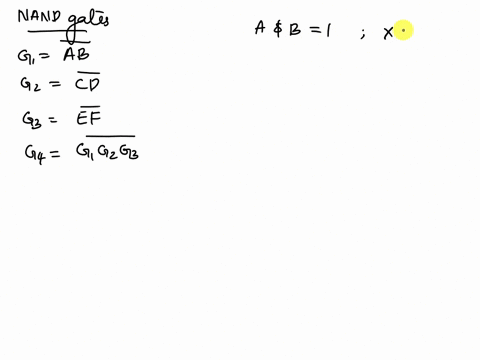 NAND gates
G₁ = \overline{AB}
G₂ = \overline{CD}
G₃ = \overline{EF}
G₄ = \overline{G₁G₂G₃}
A & B = 1 ; X